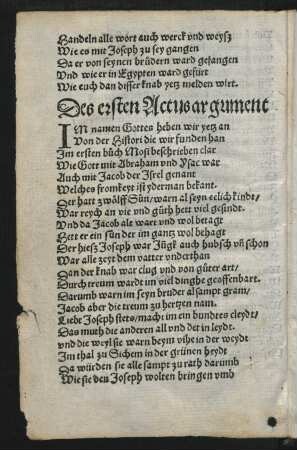 Handeln alle wort auch werck vnd weysz
Wie es mit Joseph zu sey gangen
Da er von seynen brüdern ward gefangen
Vnd wie er in Egypten ward gefürt
Wie euch dan disser knab yetz melden wirt.
Des ersten Actus argument
IM namen Gottes heben wir yetz an
Von der Histori die wir funden han
Im ersten bůch Mosi beschrieben clar
Wie Gott mit Abraham vnd Ysac war
Auch mit Jacob der Israel genant
Welches fromkeyt ist yderman bekant.
Der hatt zwölff Sün/ warn al seyn eelich kindt/
War rych an vie vnd güth hett viel gesindt.
Vnd da Jacob alt ware vnd wol betagt
Hett er ein sün der im gantz wol behagt
Der hiesz Joseph war Jügk auch hubsch vñ schon
War alle zeyt dem vatter vnderthan
Dan der knab war clug vnd von güter art/
Durch treum wardt im viel dinghe geoffenbart.
Darumb warn im seyn bruder al sampt gram/
Jacob aber die treum zu hertzen nam.
Liebt Joseph stets/ macht im ein bundtes cleydt/
Das muth die anderen all vnd det in leydt.
vnd die weyl sie warn beym vihe in der weydt
Im thal zu Sichem in der grünen heydt
Da würden sie alle sampt zu rath darumb
Wie sie den Joseph wolten bringen vmb